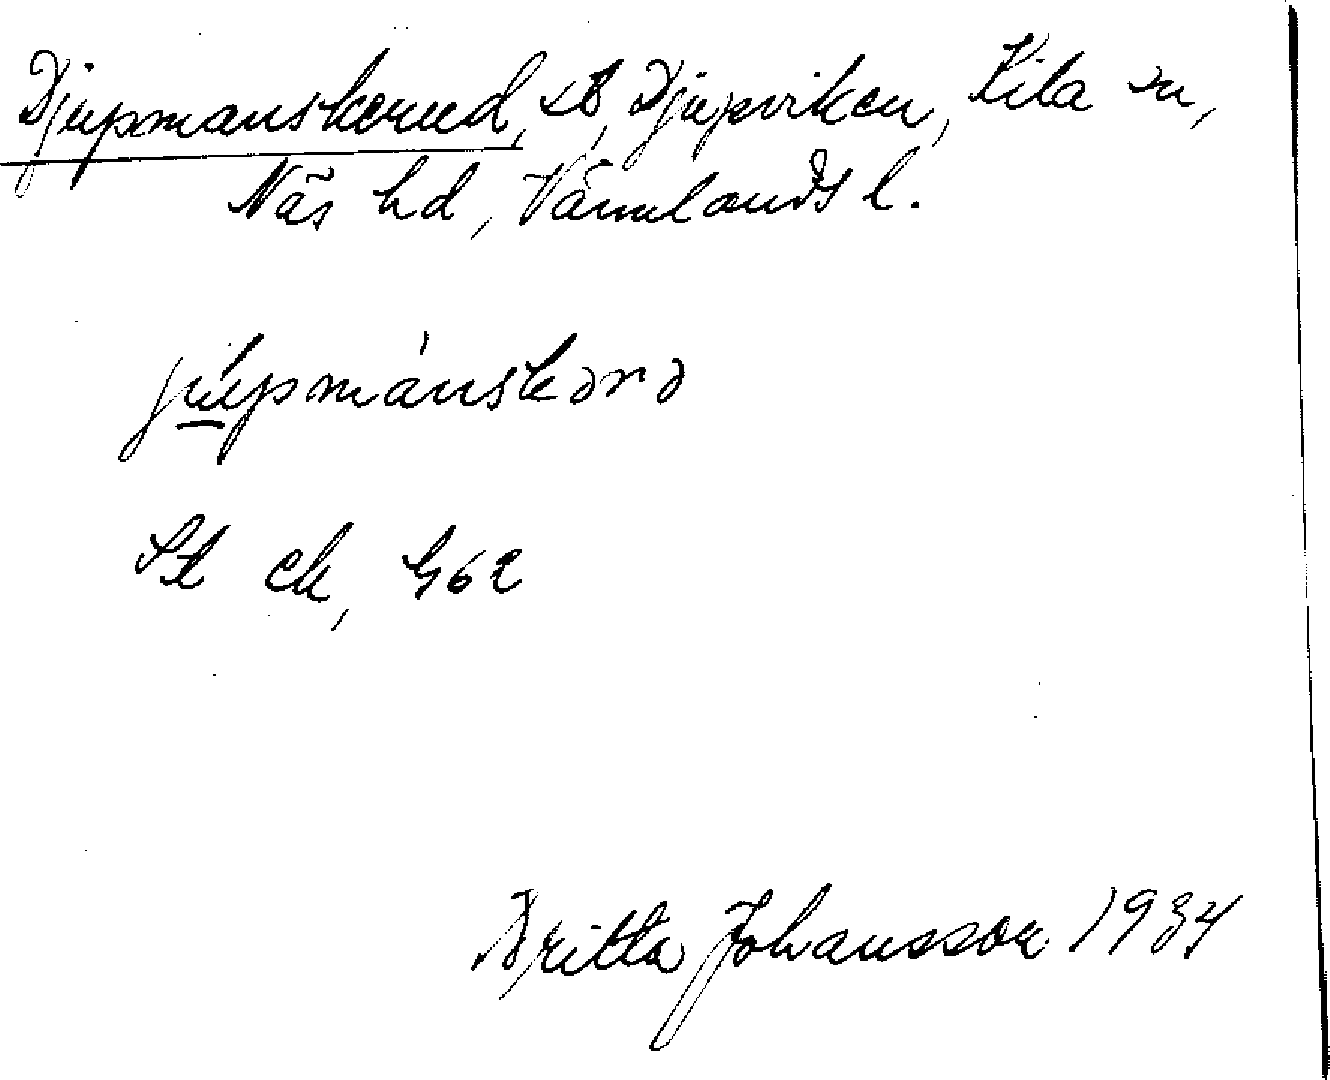 Djupmanskerud, st, Djupviken, Kila sn,
Näs hd, Värmlands l.
júpmànskərə
St ek, 462
Britta Johansson 1934